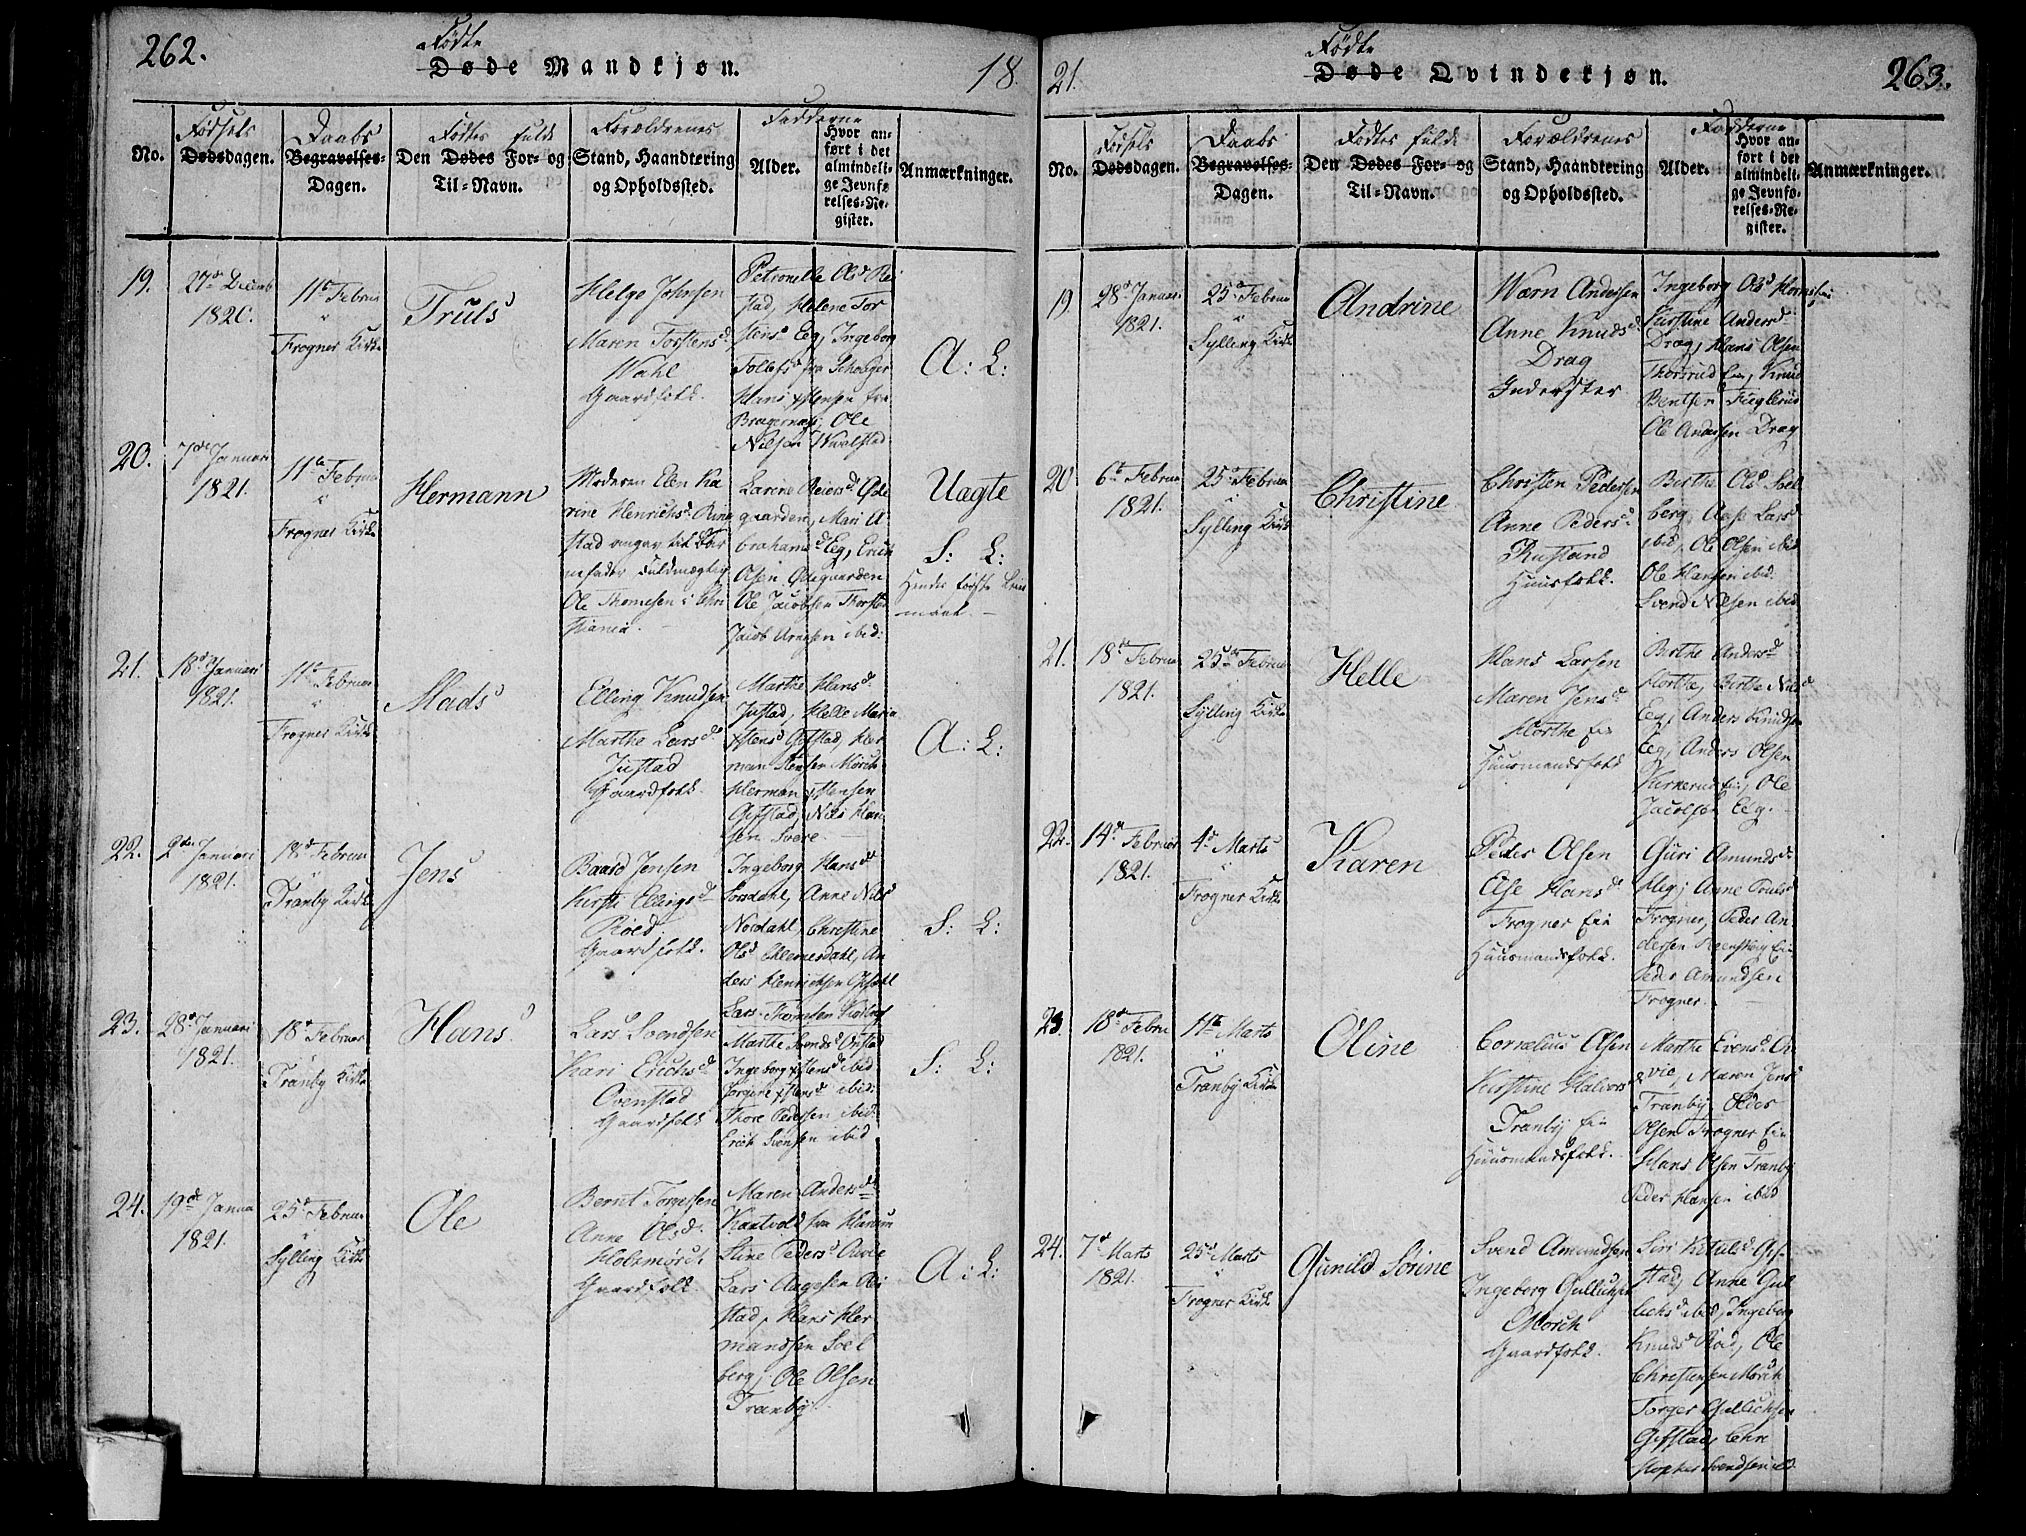 262.
Fødte
Døde Mandkjøn.
18
No.
Fødsels
Dødsdagen.
Daabs
Begravelses-
Dagen.
Fødtes fulde
Den Dødes For- og
Til-Navn.
Forældrenes
Stand, Haandtering
og Opholdssted.
Fadderne
Alder.
Hvor an-
ført i det
almindeli-
ge Jevnfø-
relses-Re-
gister.
Anmærkninger.
19.
27de Decemb
1820.
11te Februar
Frogner Kirke
Truls
Helge Johnsen
Maren Torstensd
Wahl
Gaardfolk.
Petronelle Olsd
stad, Helene Tor
stensd Eeg, Ingeborg
fra
Hans
Bragernæs, Ole
Nilsen
A: L:
20.
7de Januari
1821.
11te Februar
Frogner Kirke
Hermann
Moderen Elen Ka
rine Henrichsd
stad angav til Bar
nefader Fuldmægtig
Ole Thomesen i Chri
stiania.
Larine Reiersd Øde
gaarden, Mari A-
brahamsd Eeg, Erich
Olsen Ødegaarden
Ole Jacobsen
Jacob Arnesen ibid:
Uægte
S: L:
Hendes første Leier
maal.
21.
18de Januari
1821.
11te Februar
Frogner Kirke
Mads
Elling Knudsen
Marthe Larsd
Justad
Gaardfolk.
Marthe Hansd
Justad, Helle Maria
Gifstad, Her
man Mørch
Herman
Gifstad, Nils Han
sen
A: L:
22.
2den Januari
1821.
18de Februar
Tranby Kirke
Jens
Baard Jensen
Kirsti Ellingsd
Røed
Gaardfolk.
Ingeborg Hansd
Anne Nilsd
Nordahl, Christine
Olsd An
ders Henrichsen
S: L:
23.
28de Januari
1821.
18de Februar
Tranby Kirke
Hans
Lars Svendsen
Kari Erichsd
Ovenstad
Gaardfolk
Lars
Marthe
Ingeborg ibid
ibid:
Thore Pedersen ibid
Erich ibid
S: L:
24.
19de Janua
1821.
25de Februar
Sylling Kirke
Ole
Bernt Torgersen
Anne Olsd.
Holsmørch
Gaardfolk.
Maren Andersd
fra
Stine Pedersd
Lars Aagesen
stad, Hans Her
mandsen Soel
berg, Ole Olsen
Tranby.
A: L:
21.
Fødte
Døde Qvindekjøn.
263.
No.
Fødsels
Dødsdagen.
Daabs
Begravelses-
Dagen.
Fødtes fulde
Den Dødes For- og
Til-Navn.
Forældrenes
Stand, Haandtering
og Opholdssted.
Fadderne
Alder.
Hvor an-
ført i det
almindeli-
ge Jevnfø-
relses-Re-
gister.
Anmærkninger.
19
28de Januari
1821.
25de Februar
Sylling Kirke
Andrine
Wærn Andersen
Anne Knudsd
Drag
Inderster
Ingeborg Olsd
Kirstine Andersd
Drag, Hans Olsen
Thorsrud Eie, Knud
Bentsen
Ole Andersen Drag
20
6te Februar
1821.
25de Februar
Sylling Kirke
Christine
Christen Pedersen
Anne Pedersd
Rustand
Huusfolk.
Berthe Olsd Soel
berg, Aase Larsd
ibid, Ole Olsen ibid
Ole Hansen ibid.
Svend Nilsen ibid
21.
18de Februar
1821.
25de Februar
Sylling Kirke
Helle
Hans Larsen
Maren Jensd
Horthe Eie
Huusmandsfolk
Berthe Andersd
Horthe, Berthe Nilsd
Eeg, Anders Knudsen
Eeg, Anders Olsen
Eie, Ole
Jacobsen Eeg.
22.
14de Februar
1821.
4de Marts
Frogner Kirke
Karen
Peder Olsen
Else Hansd
Frogner Eie
Huusmandsfolk.
Guri Amundsd
Heg, Anne
Frogner, Peder An
dersen Eie
Peder Amundsen
Frogner.
23
18de Febru
1821.
11te Marts
Tranby Kirke
Oline
Cornelius Olsen
Kirstine Halvorsd
Tranby Eie
Huusmandsfolk.
Marthe Evensd
Maren Jensd
Tranby,
Olsen Frogner Eie
Hans Olsen Tranby
Peder Hansen ibid
24.
7de Marts
1821.
25de Marts
Frogner Kirke
Gunild Sørine
Svend Amundsen
Ingeborg Gullichsd
Mørch
Gaardfolk.
Siri Ketulsd Gif-
stad, Anne Gul
lichsd ibid, Ingeborg
Knudsd Ole
Christensen Mørch
Torger Gullichsen
Gifstad, Chri
stopher Svendsen ibid.